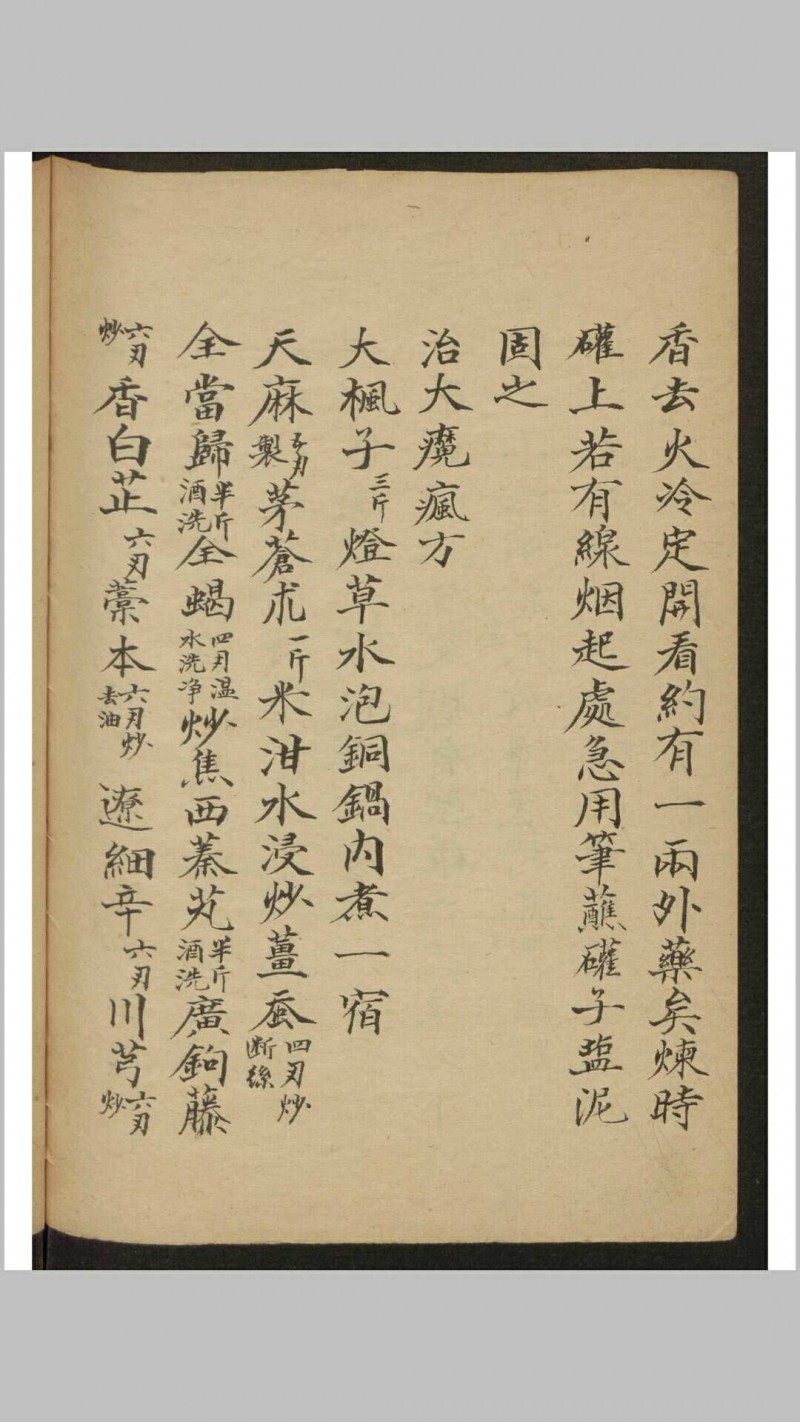 香去火冷定開看約有一兩外藥矣煉時
礶上若有線烟起處急用筆蘸礶子盐泥
固之
治大癘瘋方
大楓子三斤燈草水泡銅鍋內煮一宿
天麻五刃製茅蒼朮一斤米泔水浸炒薑蚕四刃炒断絲
全當歸半斤酒洗全蝎四刃温水洗净炒焦西蓁艽半斤酒洗廣鉤藤
六刃炒香白芷六刃藁本六刃炒去油遼細辛六刃川芎六刃炒